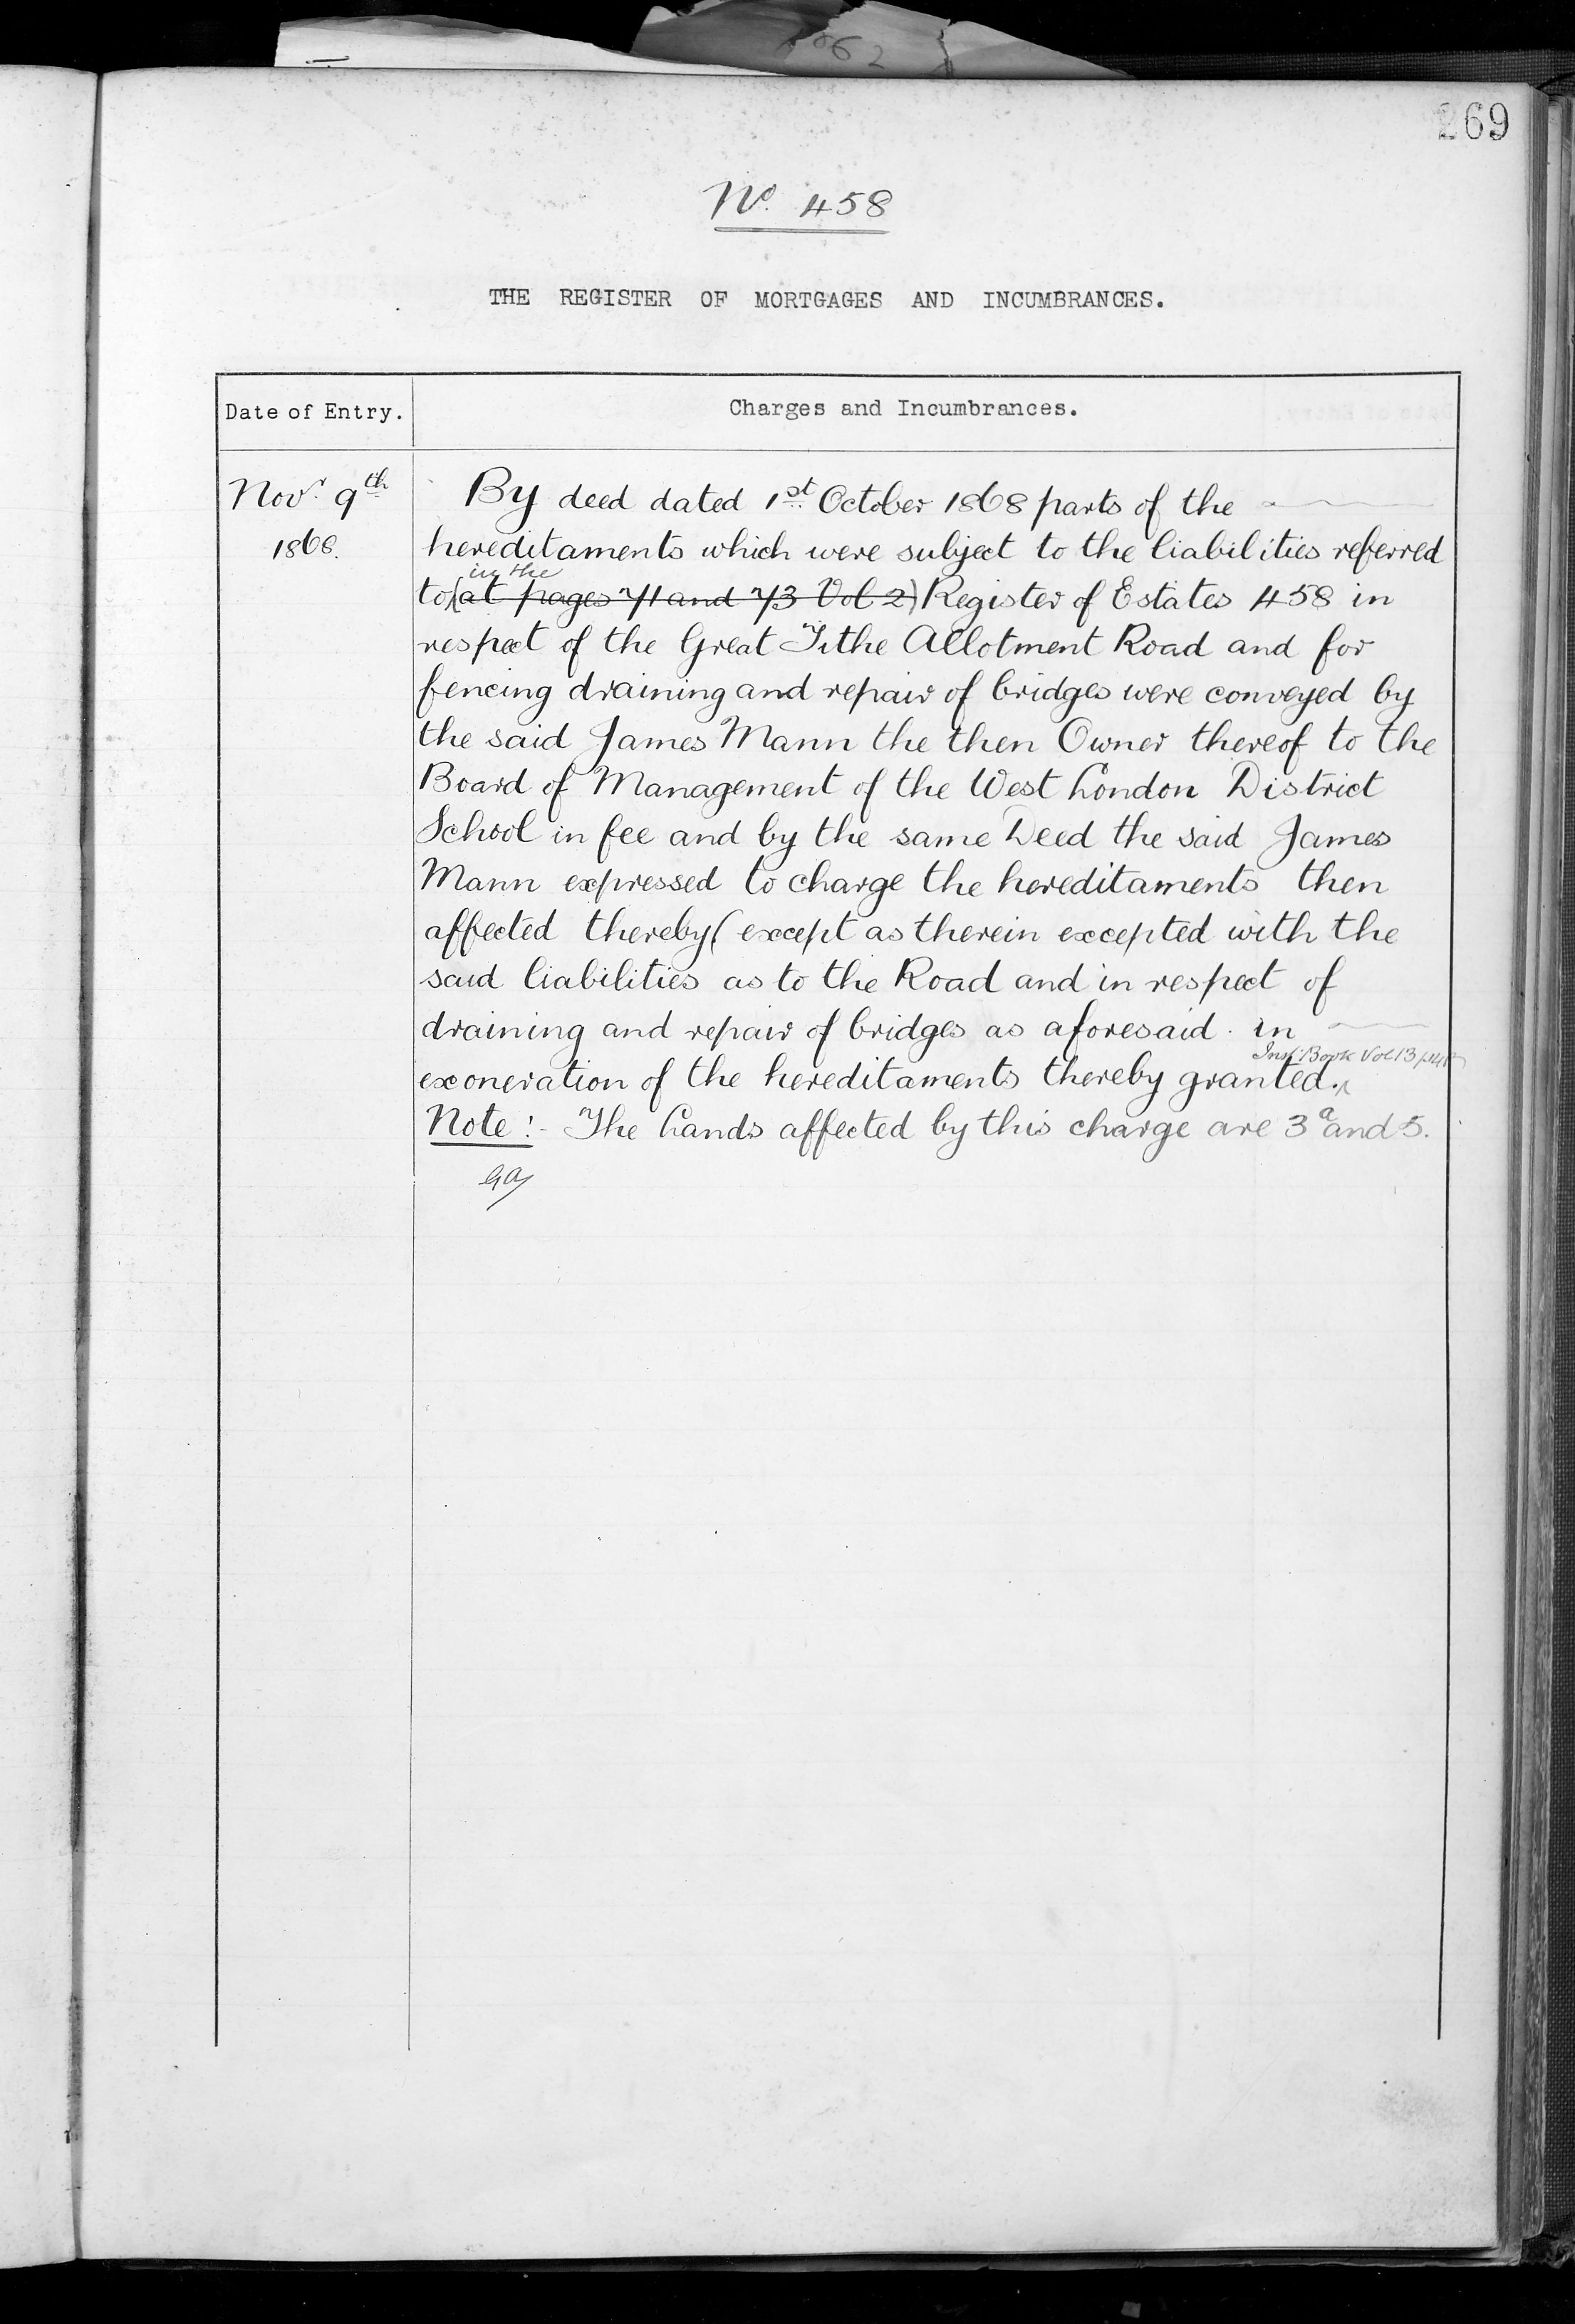 269
No. 458
THE REGISTER OF MORTGAGES AND INCUMBRANCES.
Date of Entry.
Charges and Incumbrances.
Novr. 9th
1868.
By deed dated 1st October 1868 parts of the
hereditaments which were subject to the liabilities referred
in the
to (at pages 71 and 73 Vol 2) Register of Estates 458 in
respect of the Great Tithe Allotment Road and for
fencing draining and repair of bridges were conveyed by
the said James Mann the then Owner thereof to the
Board of Management of the West London District
School in fee and by the same Deed the said James
Mann expressed to charge the hereditaments then
affected thereby (except as therein excepted with the
said liabilities as to the Road and in respect of
draining and repair of bridges as aforesaid. in
Inst. Book Vol 13
exoneration of the hereditaments thereby granted.
Note:- The Lands affected by this charge are 3a and 5.